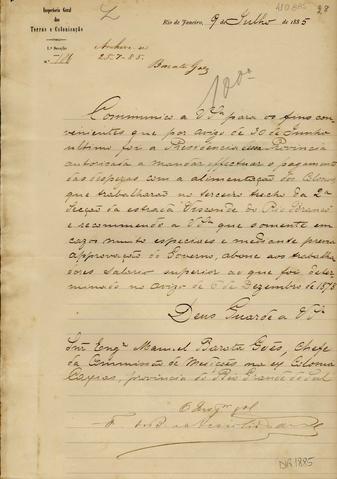 Inspectoria Geral
das
Terras e Colonização
1.ª Secção
N. 714
Rio de Janeiro, 9 de Julho de 1885
28
Archive-se
25-7-85.
Barata Góes
Communico a V.Sª para os fins con-
venientes que por aviso de 30 de Junho
ultimo foi a Presidencia da Provincia
autorisada a mandar effectuar o pagamento
das despezas com a alimentação dos colonos
que trabalharão no terceiro trecho da 2ª
Secção da estrada Visconde do Rio Branco
e recommendo a V.Sª que somente em
casos muito especiaes e mediante previa
approvação do Governo, abone aos trabalha-
dores salario superior ao que foi deter-
minado no aviso de 6 de Dezembro de 1878
Deus Guarde a V.Sª
Snr Engº Manuel Barata Góes, Chefe
da Commissão de Medições na ex Colonia
Caxias, provincia do Rio Grande do Sul
O Insp.or geral